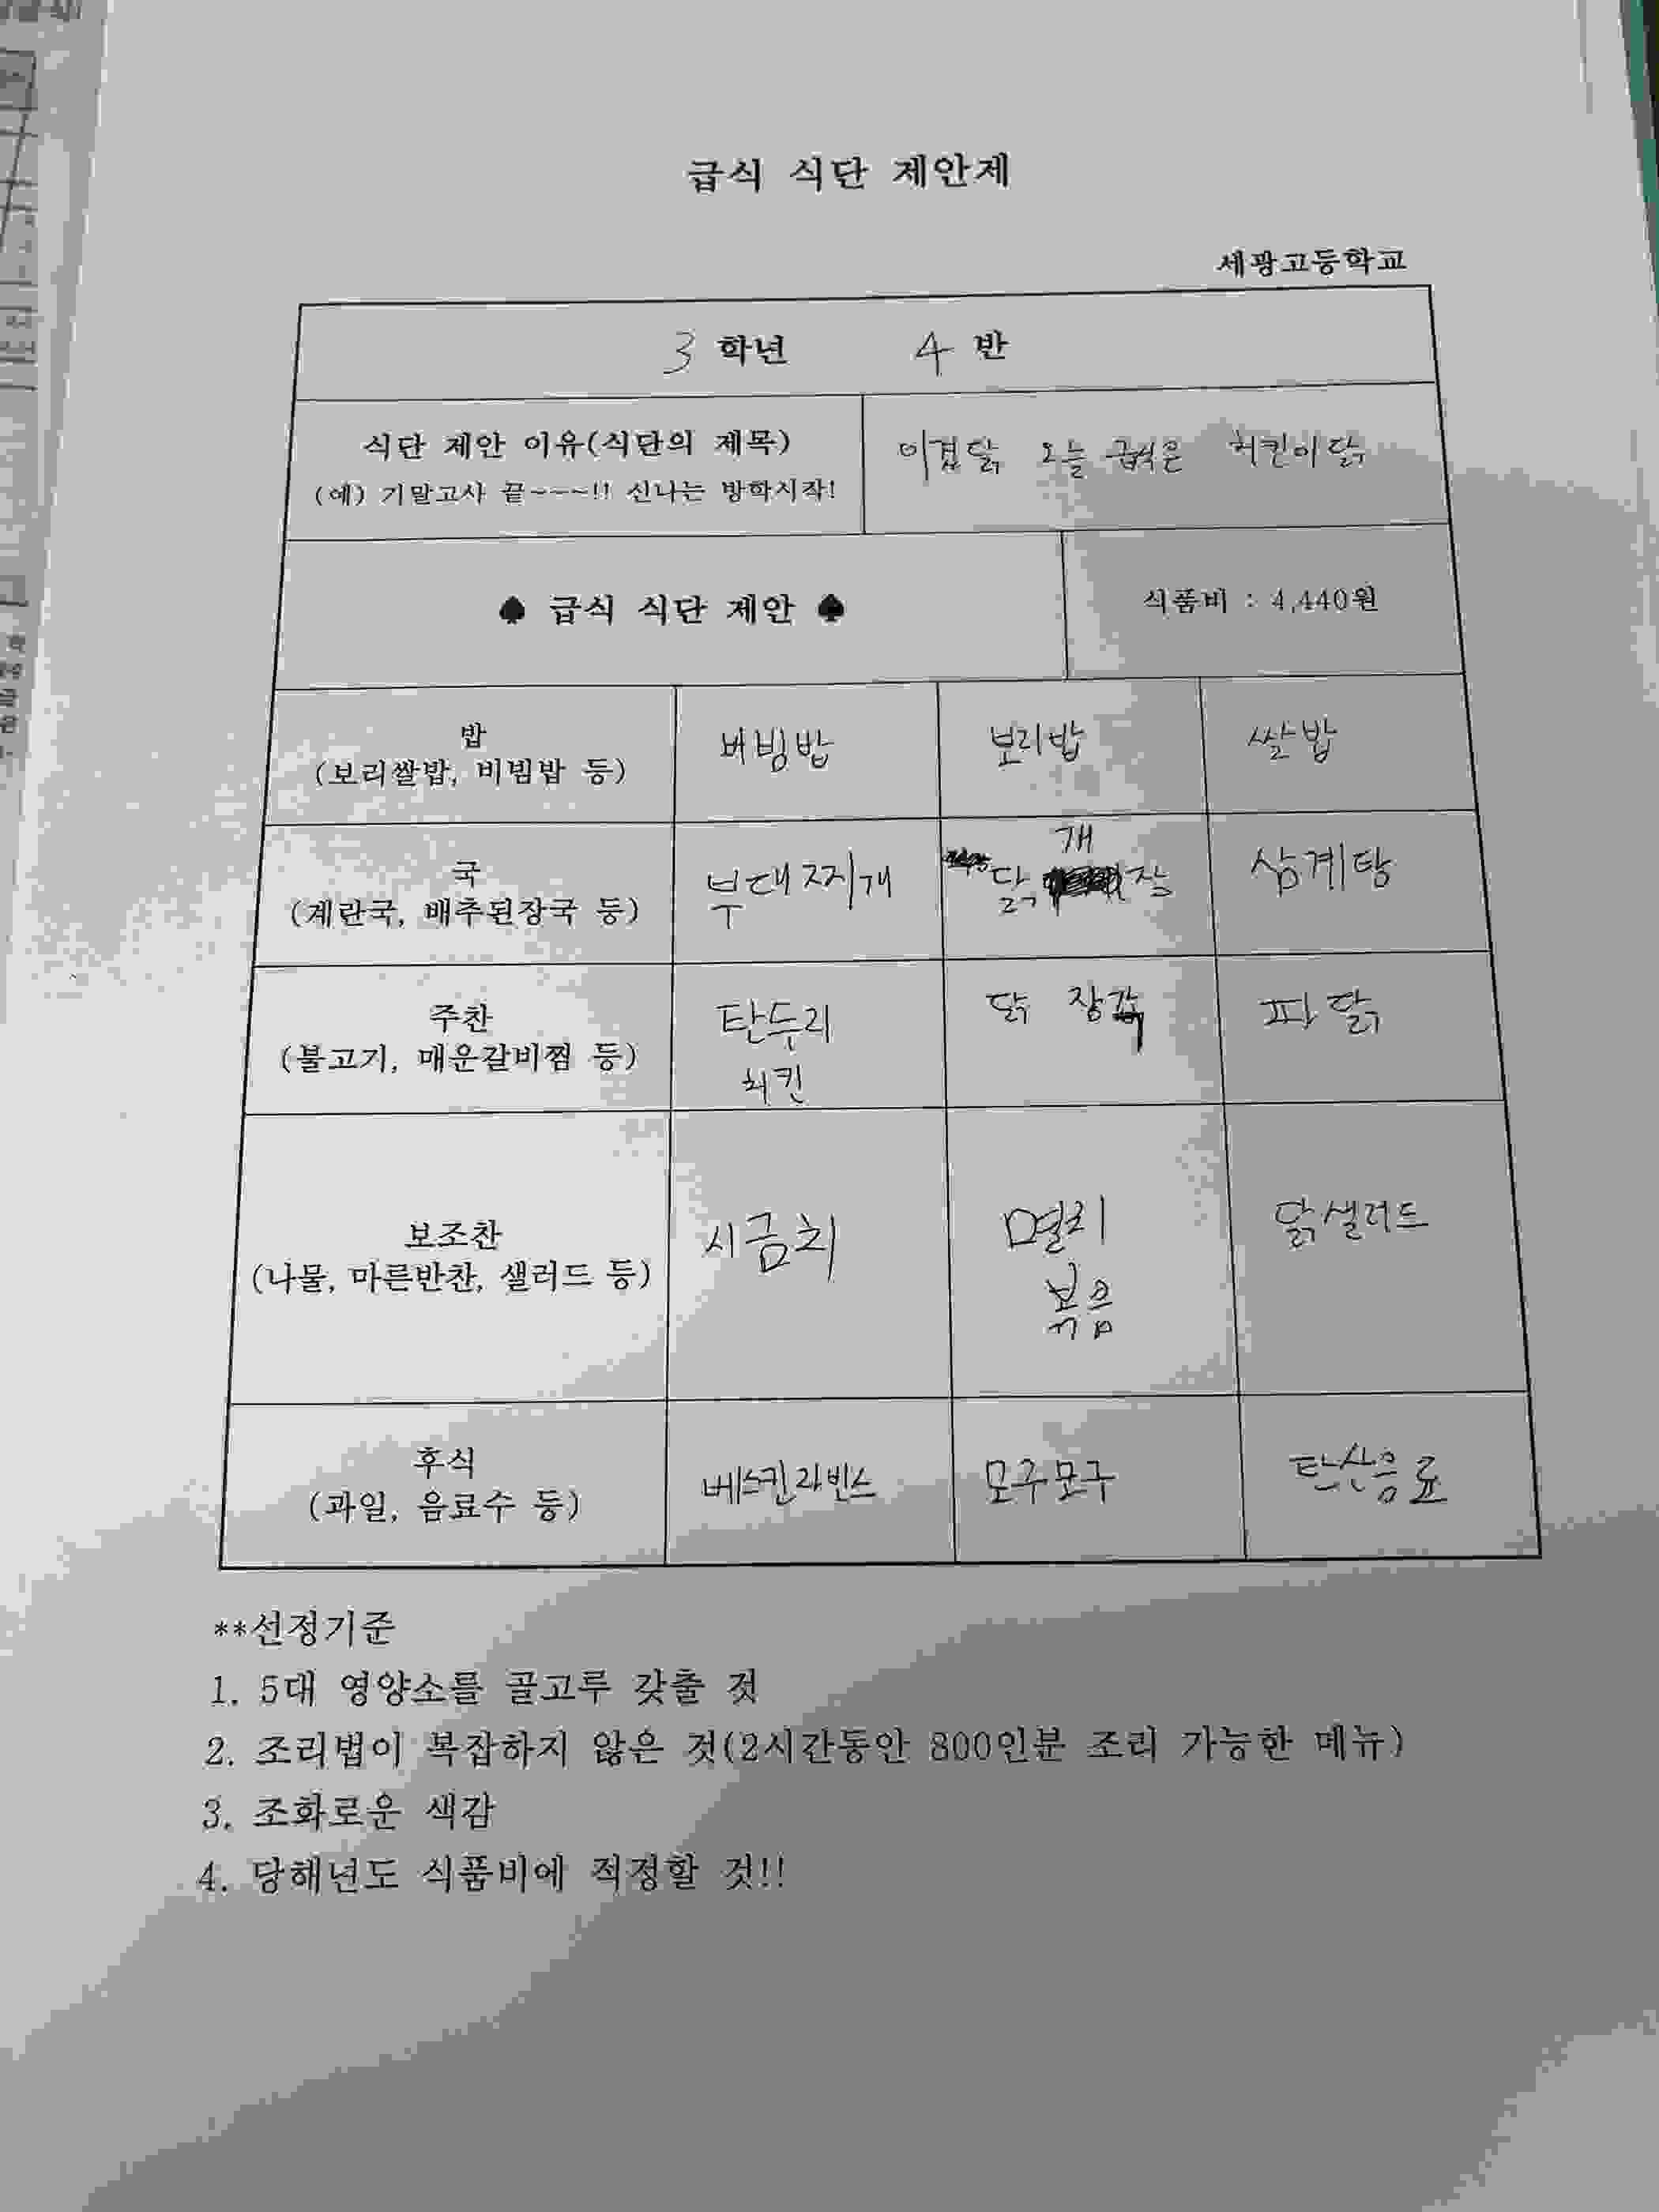 급식 식단 제안제
세광고등학교
3 학년 4 반
식단 제안 이유(식단의 제목)
(예) 기말고사 끝~~~!! 신나는 방학시작!
이겁닭 오늘 급식은 치킨이닭
♠ 급식 식단 제안 ♠
식품비 : 4,440원
밥
(보리쌀밥, 비빔밥 등)
보리밥
쌀밥
국
(계란국, 배추된장국 등)
부대찌개
닭개장
삼계탕
주찬
(불고기, 매운갈비찜 등)
탄두리
치킨
닭 장각
파닭
보조찬
(나물, 마른반찬, 샐러드 등)
시금치
멸치
볶음
닭샐러드
후식
(과일, 음료수 등)
베스킨라빈스
모구모구
탄산음료
**선정기준
1. 5대 영양소를 골고루 갖출 것
2. 조리법이 복잡하지 않은 것(2시간동안 800인분 조리 가능한 메뉴)
3. 조화로운 색감
4. 당해년도 식품비에 적정할 것!!